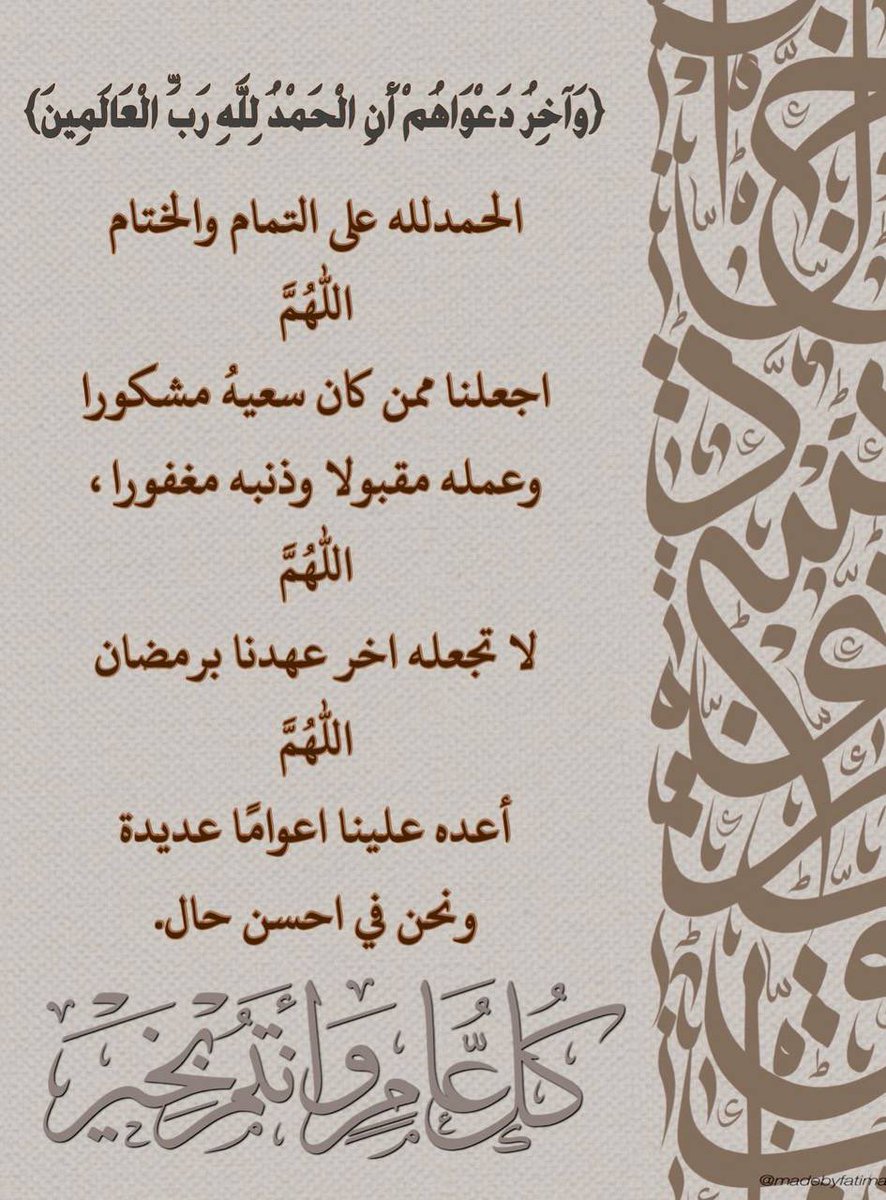 ﴿وَآخِرُ دَعْوَاهُمْ أَنِ الْحَمْدُ لِلَّهِ رَبِّ الْعَالَمِينَ﴾
الحمدلله على التمام والختام
اللهُمَّ
اجعلنا ممن كان سعيهُ مشكورا
وعمله مقبولا وذنبه مغفورا ،
اللهُمَّ
لا تجعله اخر عهدنا برمضان
اللهُمَّ
أعده علينا اعوامًا عديدة
ونحن في احسن حال.
كُلُ عَامٍ وَأنتُم بِخَيرَ
@madebyfatima